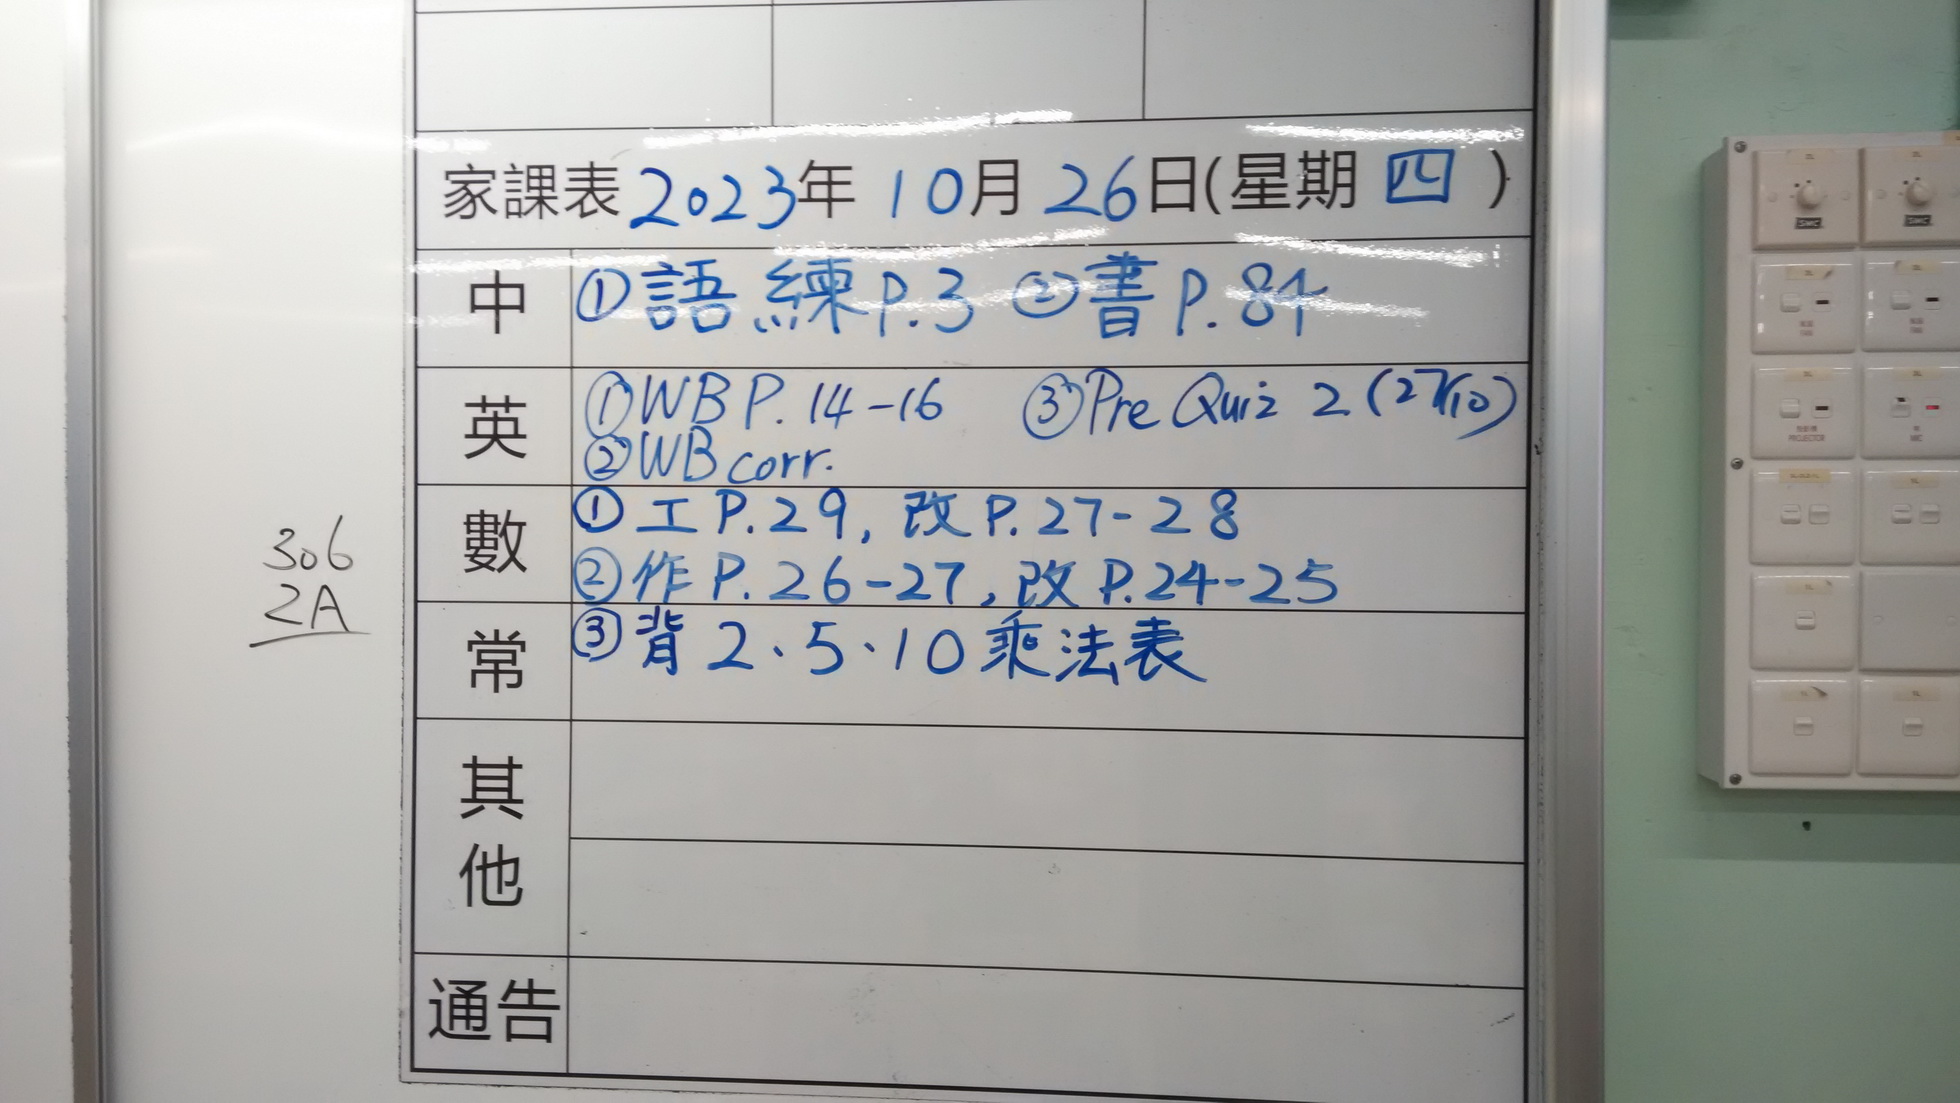 家課表 2023年 10月 26日(星期 四 )
中 ①語練P.3 ②書P.84
英 ①WB P. 14-16 ③Pre Quiz 2 (27/10)
②WB corr.
數 ①工P.29, 改P.27-28
②作P.26-27, 改P.24-25
常 ③背2、5、10乘法表
其他
通告
306
2A
PROJECTOR
MIC